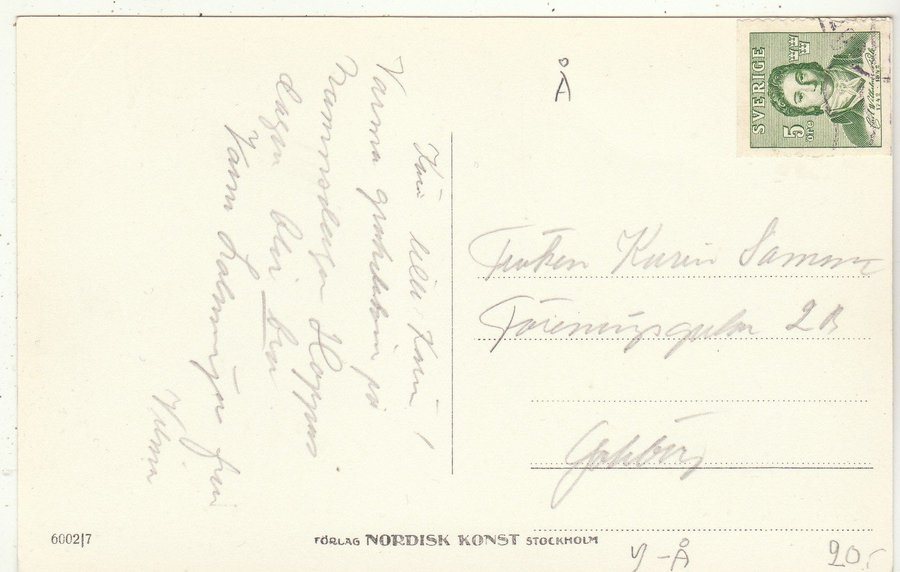 Kära lilla Karin!
Varma gratulationer på
Namnsdagen Hoppas
dagen blir bra
från
Å
SVERIGE
5
öre
1742 1932
Fröken Karin
Föreningsgatan 2B
Göteborg
6002|7
FÖRLAG NORDISK KONST STOCKHOLM
Y-Å
20:-